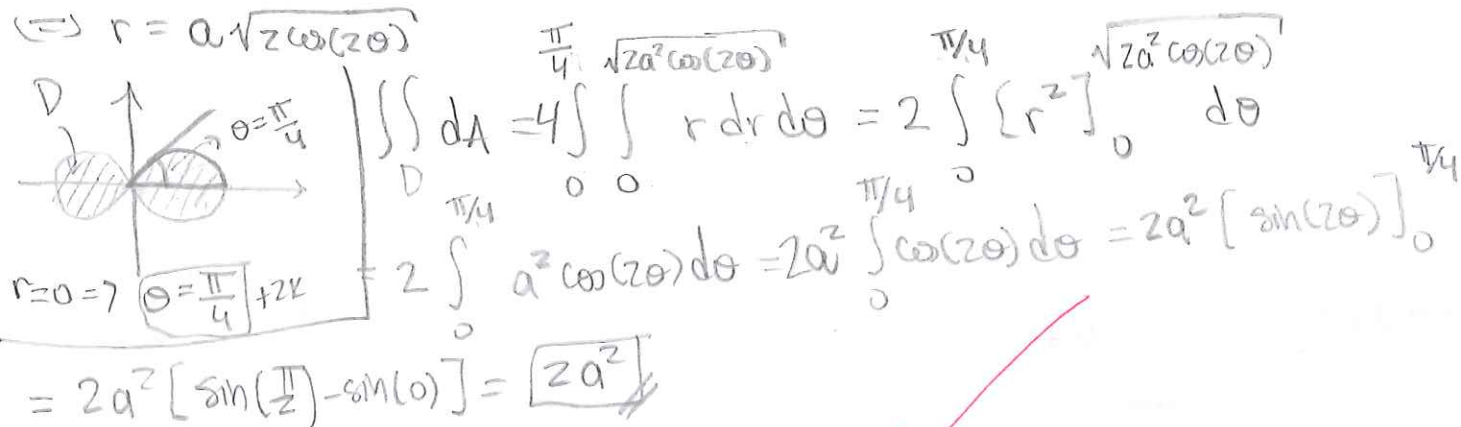 (=) r = a√(2cos(2θ))
D
θ=π/4
r=0 => θ=π/4 +2k
∬_D dA = 4∫_0^{π/4} ∫_0^{√(2a²cos(2θ))} r dr dθ = 2 ∫_0^{π/4} [r²]_0^{√(2a²cos(2θ))} dθ
= 2 ∫_0^{π/4} a² cos(2θ) dθ = 2a² ∫_0^{π/4} cos(2θ) dθ = 2a² [sin(2θ)]_0^{π/4}
= 2a² [sin(π/2) - sin(0)] = 2a²